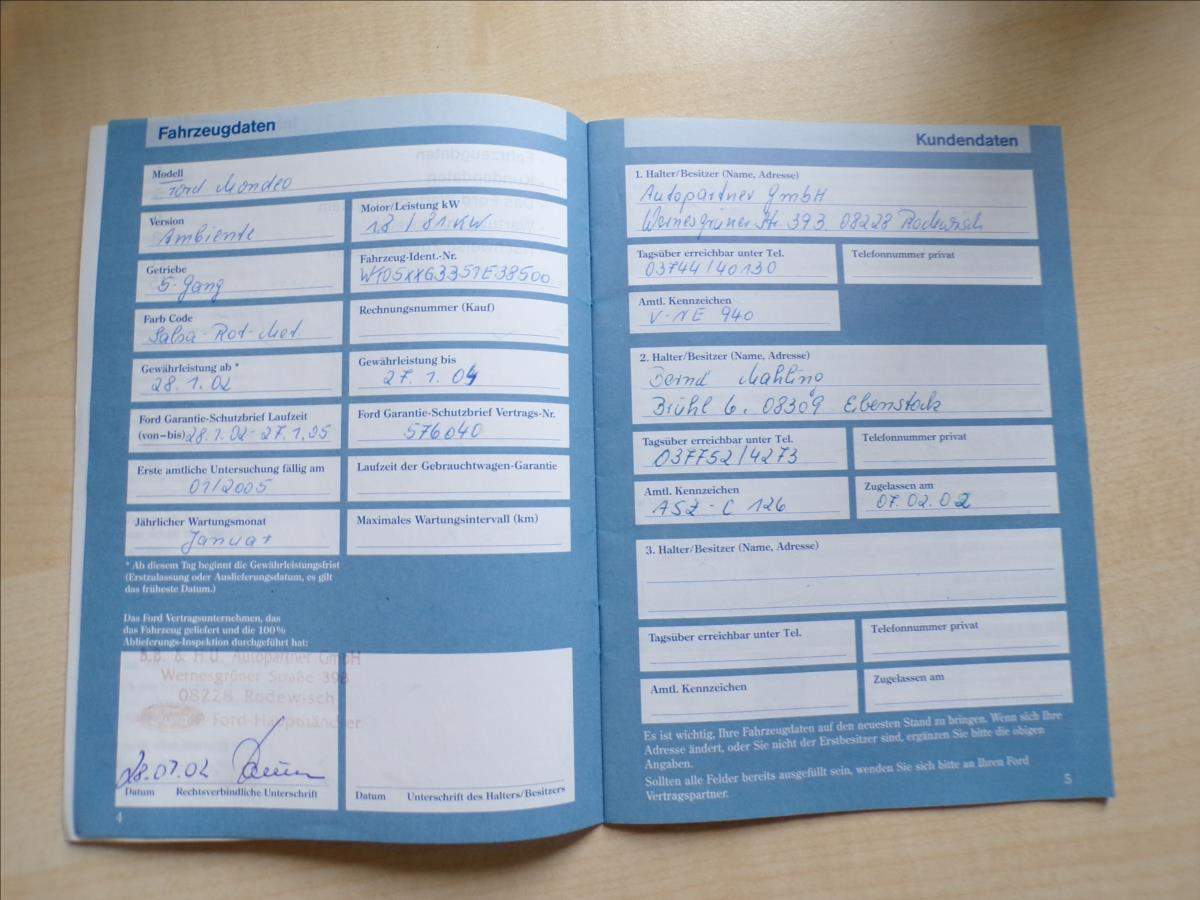 Fahrzeugdaten
Modell
Ford Mondeo
Version
Ambiente
Motor/Leistung kW
1.8 / 81 KW
Getriebe
5-Gang
Fahrzeug-Ident.-Nr.
Farb Code
Salsa-Rot-Met
Rechnungsnummer (Kauf)
Gewährleistung ab *
28.1.02
Gewährleistung bis
27.1.04
Ford Garantie-Schutzbrief Laufzeit
(von–bis) 28.1.02 - 27.1.05
Ford Garantie-Schutzbrief Vertrags-Nr.
576040
Erste amtliche Untersuchung fällig am
01/2005
Laufzeit der Gebrauchtwagen-Garantie
Jährlicher Wartungsmonat
Januar
Maximales Wartungsintervall (km)
* Ab diesem Tag beginnt die Gewährleistungsfrist
(Erstzulassung oder Auslieferungsdatum, es gilt
das früheste Datum.)
Das Ford Vertragsunternehmen, das
das Fahrzeug geliefert und die 100%
Ablieferungs-Inspektion durchgeführt hat:
B.B. & H.U. Autopartner GmbH
Wernesgrüner Straße 393
08228 Rodewisch
Ford-Haupthändler
28.01.02
Datum Rechtsverbindliche Unterschrift
Datum Unterschrift des Halters/Besitzers
4
Kundendaten
1. Halter/Besitzer (Name, Adresse)
Autopartner GmbH
Wernesgrüner Str. 393. 08228 Rodewisch
Tagsüber erreichbar unter Tel.
03744/40130
Telefonnummer privat
Amtl. Kennzeichen
V-NE 940
2. Halter/Besitzer (Name, Adresse)
Bernd Mahling
Brühl 6. 08309 Eibenstock
Tagsüber erreichbar unter Tel.
037752/4273
Telefonnummer privat
Amtl. Kennzeichen
ASZ-C 126
Zugelassen am
07.02.02
3. Halter/Besitzer (Name, Adresse)
Tagsüber erreichbar unter Tel.
Telefonnummer privat
Amtl. Kennzeichen
Zugelassen am
Es ist wichtig, Ihre Fahrzeugdaten auf den neuesten Stand zu bringen. Wenn sich Ihre
Adresse ändert, oder Sie nicht der Erstbesitzer sind, ergänzen Sie bitte die obigen
Angaben.
Sollten alle Felder bereits ausgefüllt sein, wenden Sie sich bitte an Ihren Ford
Vertragspartner.
5